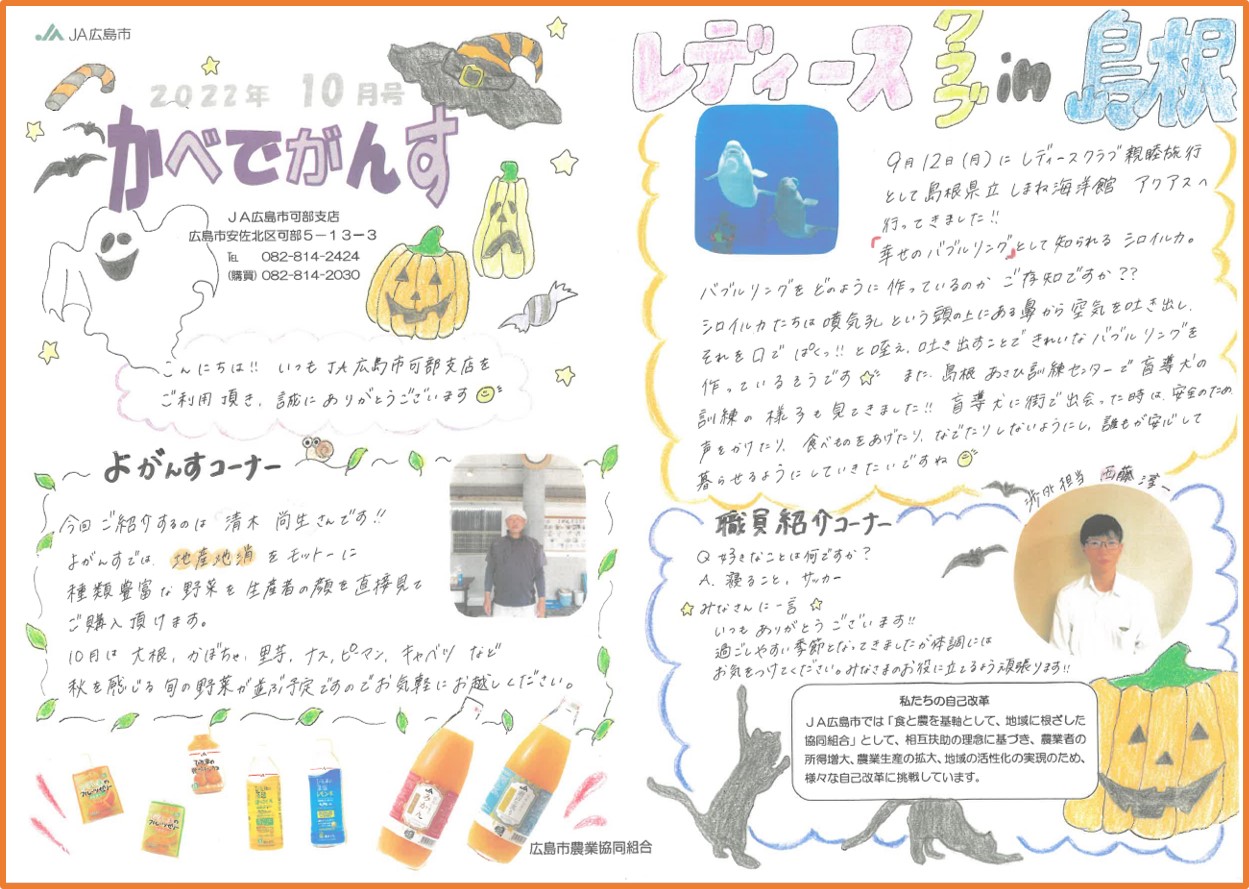 JA広島市
2022年 10月号
かべでがんす
JA広島市可部支店
広島市安佐北区可部5－13－3
℡ 082-814-2424
(購買) 082-814-2030
こんにちは!! いつもJA広島市可部支店を
ご利用頂き、誠にありがとうございます
よがんすコーナー
今回ご紹介するのは 清木 尚生さんです!!
よがんすでは、地産地消をモットーに
種類豊富な野菜を生産者の顔を直接見て
ご購入頂けます。
10月は 大根、かぼちゃ、里芋、ナス、ピーマン、キャベツ など
秋を感じる旬の野菜が並ぶ予定ですのでお気軽にお越しください。
みかん
広島市農業協同組合
レディースクラブin島根
9月12日(月)に レディースクラブ親睦旅行
として島根県立 しまね海洋館 アクアスへ
行ってきました!!
「幸せのバブルリング」として知られる シロイルカ。
バブルリングをどのように作っているのか ご存知ですか??
シロイルカたちは噴気孔という頭の上にある鼻から空気を吐き出し、
それを口で ぱくっ!! と咥え、吐き出すことできれいなバブルリングを
作っているそうです☆ また、島根あさひ訓練センターで盲導犬の
訓練の様子も見てきました!! 盲導犬に街で出会った時は、安全のため
声をかけたり、食べものをあげたり、なでたりしないようにし、誰もが安心して
暮らせるようにしていきたいですね
渉外担当 西藤 滢一
職員紹介コーナー
Q 好きなことは何ですか?
A. 寝ること、サッカー
☆みなさんに一言☆
いつもありがとうございます!!
過ごしやすい季節となってきましたが体調には
お気をつけてください。みなさまのお役に立てるよう頑張ります!!
私たちの自己改革
JA広島市では「食と農を基軸として、地域に根ざした
協同組合」として、相互扶助の理念に基づき、農業者の
所得増大、農業生産の拡大、地域の活性化の実現のため、
様々な自己改革に挑戦しています。